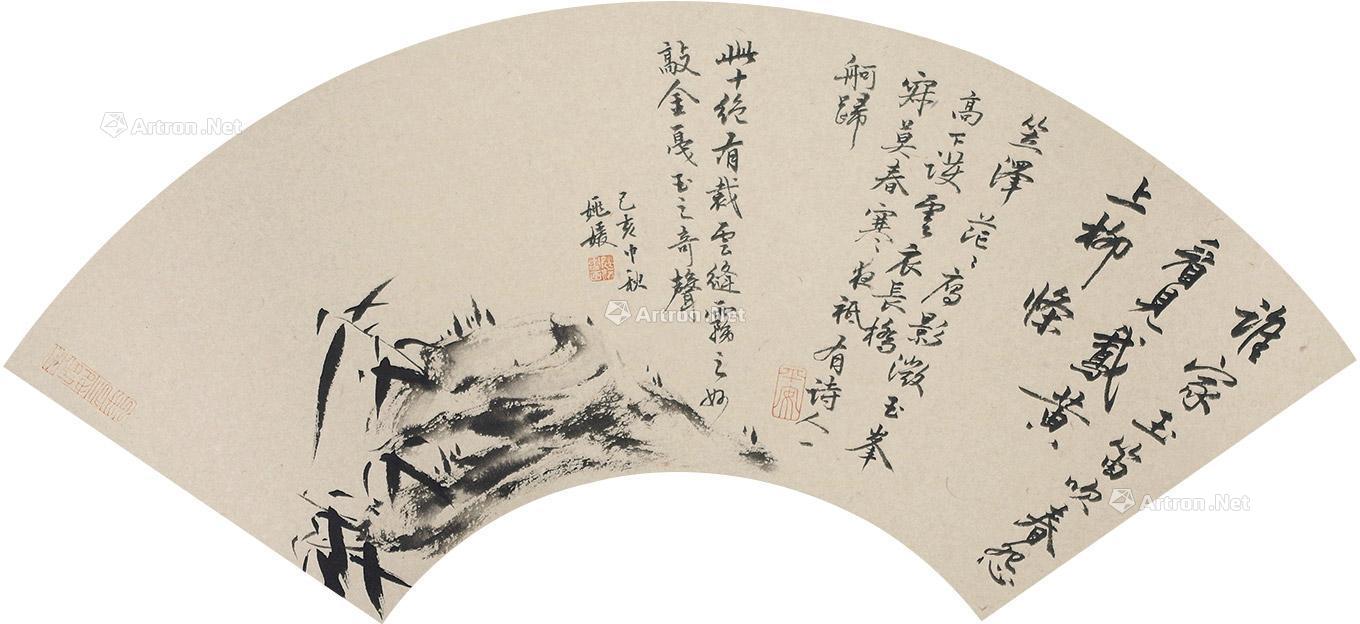 誰家玉笛吹春怨
看見鵝黃
上柳條
笠澤茫〻雁影微玉峯
高下護雲衣長橋
寂莫春寒〻夜祇有詩人一
舸歸
此十絕有裁雲縫霧之妙
敲金戛玉之奇聲
己亥中秋
姚媛
平安
Artron.Net
Artron.Net
Artron.Net